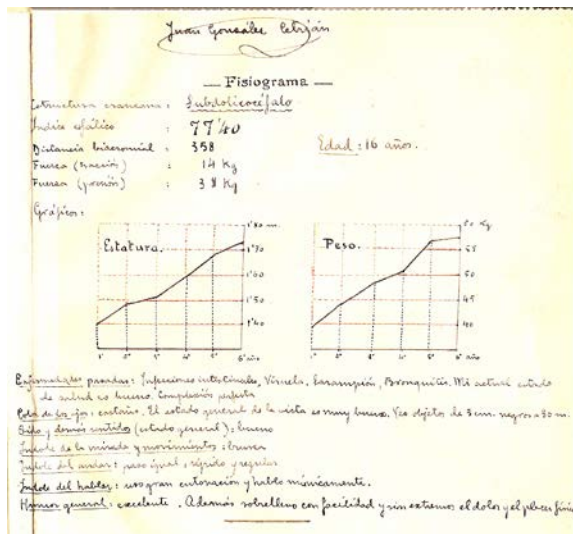 Juan Gonsáles Cebrián
— Fisiograma —
Estructura craneana : Subdolicocéfalo
Índice cefálico : 77'40
Distancia biacromial : 358
Edad : 16 años.
Fuerza (tracción) : 14 Kg
Fuerza (presión) : 38 Kg
Gráficos :
Estatura.
1'80 m.
1'70
1'60
1'50
1'40
1° 2° 3° 4° 5° 6° año
Peso.
60 Kg
55
50
45
40
1° 2° 3° 4° 5° 6° año
Enfermedades pasadas : Infecciones intestinales, Viruela, Sarampión, Bronquitis. Mi actual estado
de salud es bueno. Complexión perfecta
Color de los ojos : castaño. El estado general de la vista es muy bueno. Veo objetos de 3 cm. negros a 80 m.
Oído y demás sentidos (estado general) : bueno
Índole de la mirada y movimientos : buena
Índole del andar : paso igual, rápido y regular
Índole del hablar : uso gran entonación y hablo mímicamente.
Humor general : excelente. Además sobrellevo con facilidad y sin extremos el dolor y el placer